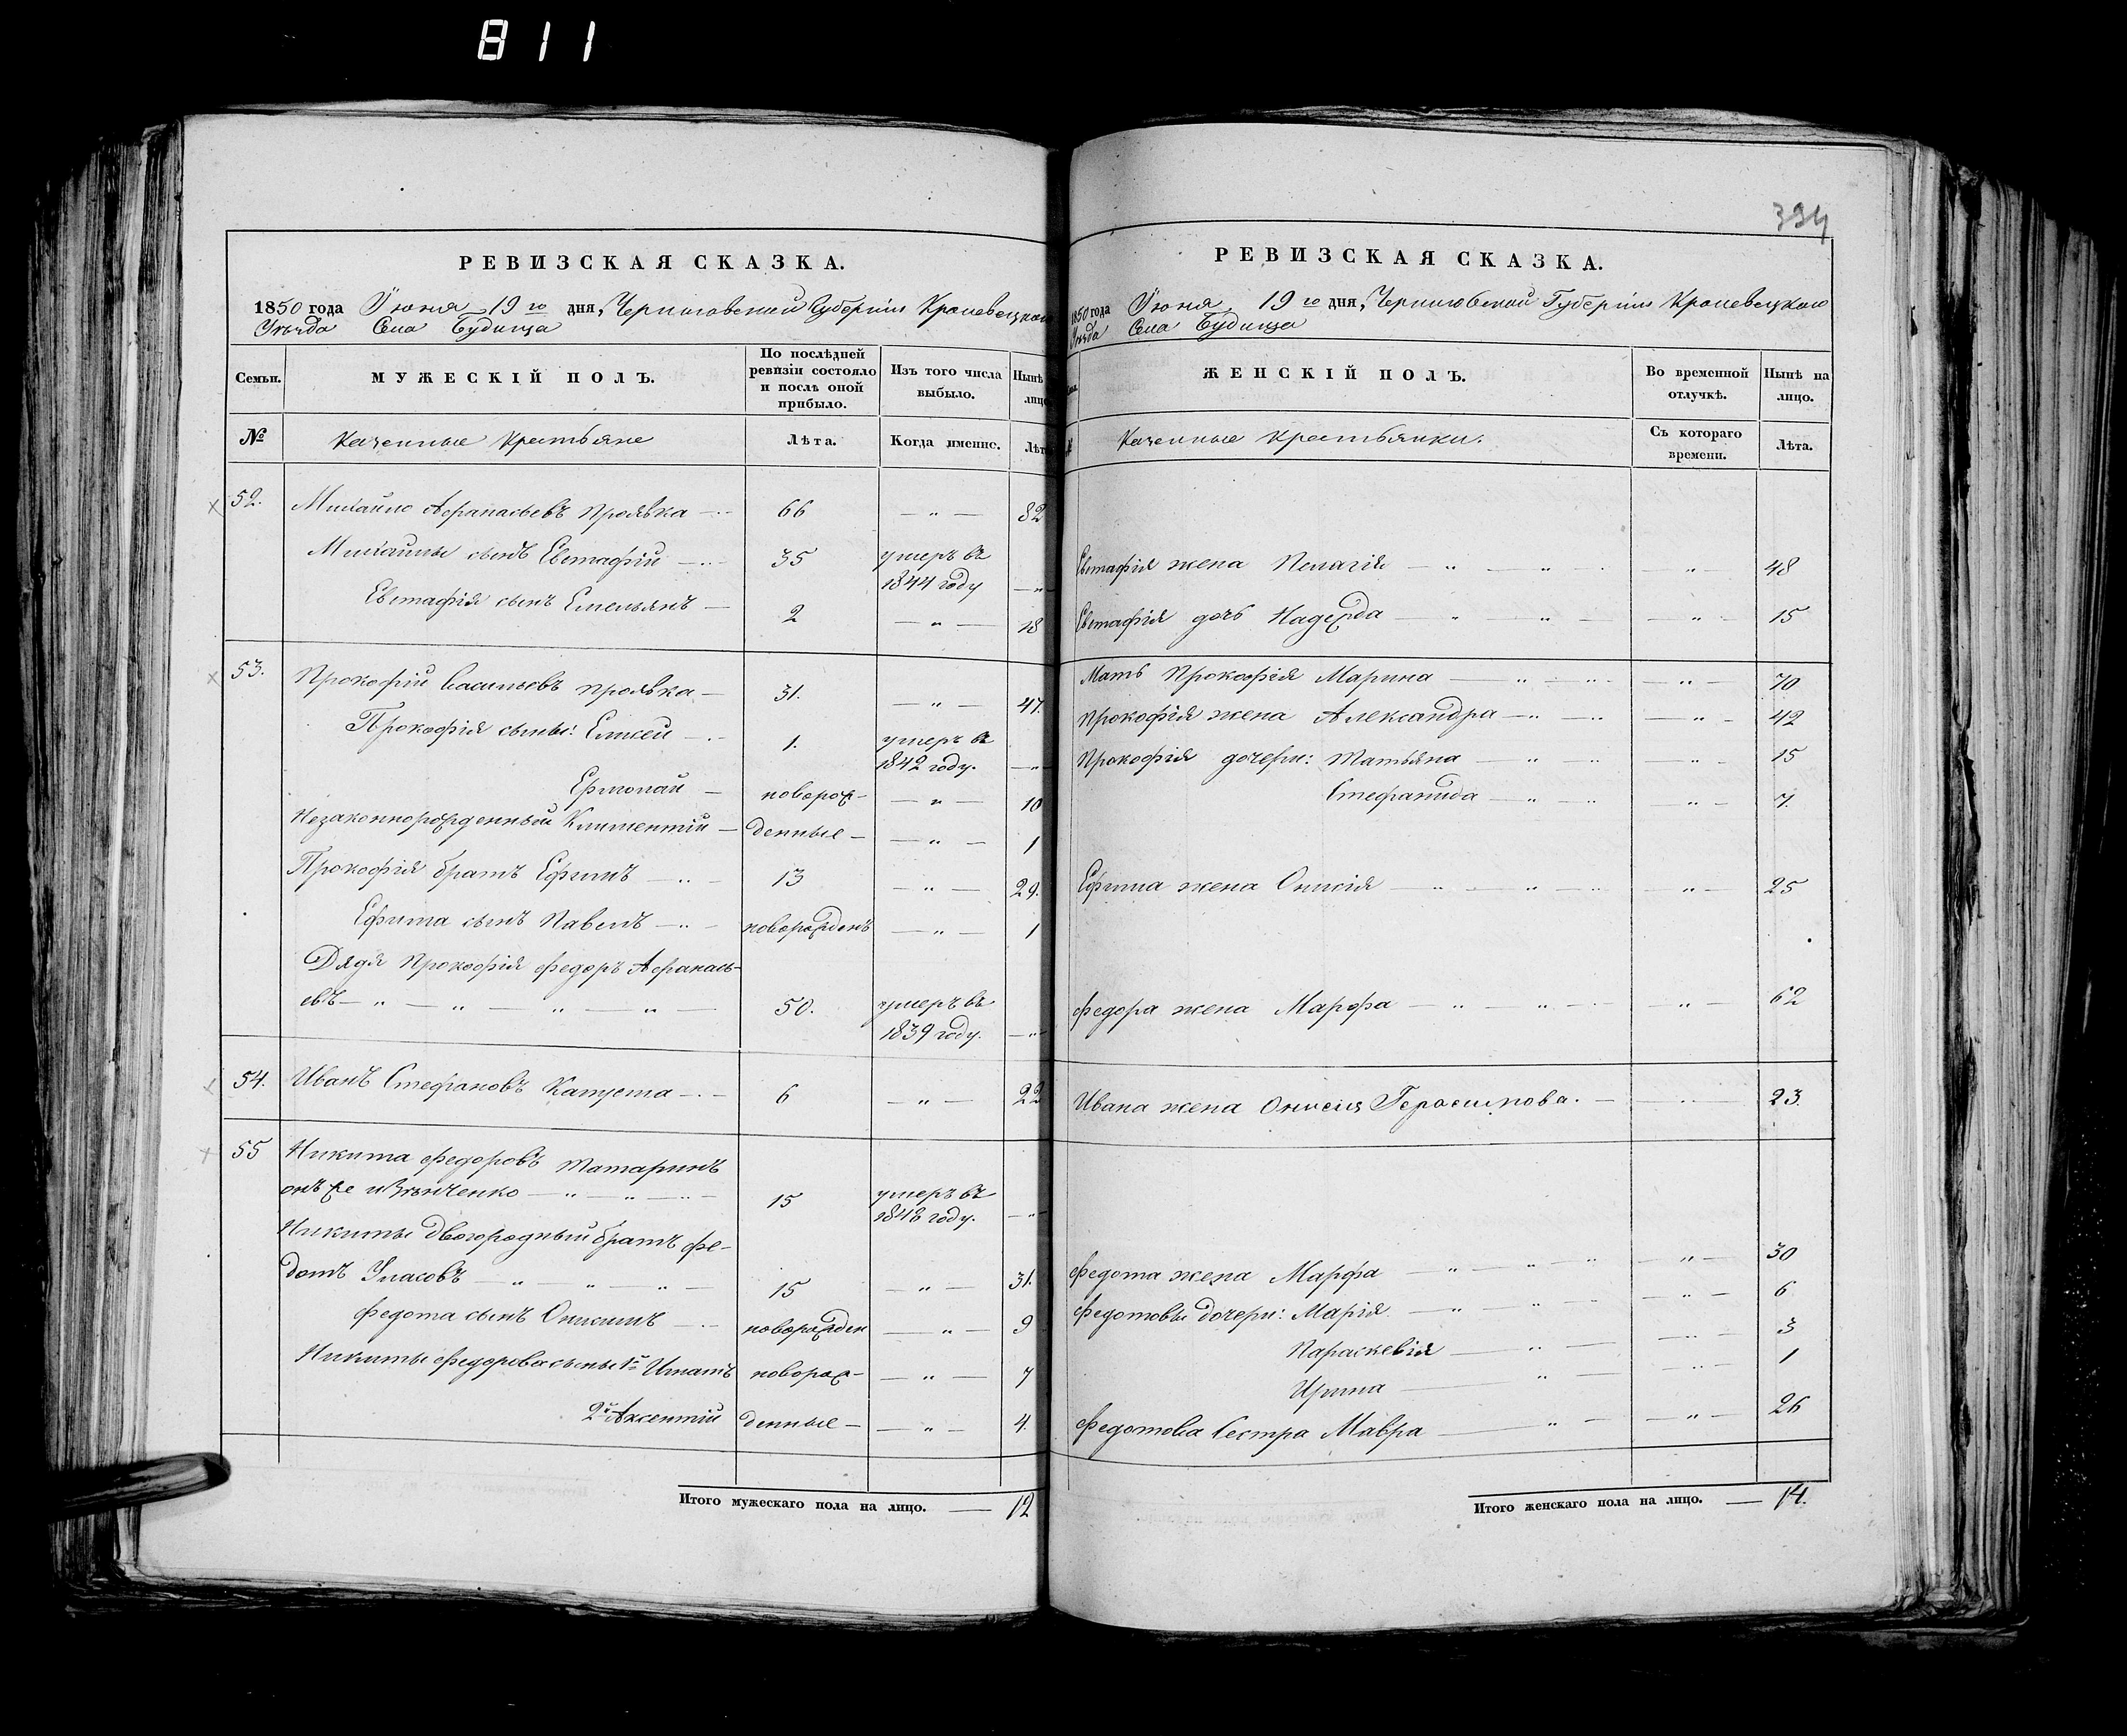 811
РЕВИЗСКАЯ СКАЗКА.
1850 года Іюня 19го дня, Черниговской Губерніи Кролевецкаго
Уѣзда Села Будища
Семьи. МУЖЕСКІЙ ПОЛЪ. По послѣдней ревизіи состояло и послѣ оной прибыло. Изъ того числа выбыло. Нынѣ лицо
№ Казенные Крестьяне Лѣта. Когда именно. Лѣт
52. Михайло Афанасьевъ Проявка 66 — „ — 82
Михайлы сынъ Евстафій 35 умеръ въ
1844 году — „
Евстафія сынъ Емельянъ 2 — „ — 18
53. Прокофій Васильевъ Проявка 31. — „ — 47.
Прокофія сыны: Елисей 1. умеръ въ
1842 году. — „
Ермолай новорож- — „ — 10
Незаконнорожденный Климентій денные — „ — 1
Прокофія братъ Ефимъ 13 — „ — 29.
Ефима сынъ Павелъ новорожденъ — „ — 1
Дядя Прокофія Федоръ Афанась-
евъ 50. умеръ въ
1839 году. — „
54. Иванъ Стефановъ Капуста 6 — „ — 22
55 Никита Федоровъ Татаринъ
онъ же 15 умеръ въ
1848 году. — „
Никиты двогородный братъ Фе-
дотъ Уласовъ 15 — „ — 31.
Федота сынъ Онисимъ новорожден — „ — 9
Никиты Федорова сыны 1й Игнатъ новорож- — „ — 7
2й Аксентій денные — „ — 4.
Итого мужескаго пола на лицо. — 12
394
РЕВИЗСКАЯ СКАЗКА.
1850 года Іюня 19го дня, Черниговской Губерніи Кролевецкаго
Уѣзда Села Будища
ЖЕНСКІЙ ПОЛЪ. Во временной отлучкѣ. Нынѣ на лицо.
Казенные Крестьянки. Съ котораго времени. Лѣта.
Евстафія жена Пелагія — „ — 48
Евстафія дочь Надежда — „ — 15
Мать Прокофія Марина — „ — 70
Прокофія жена Александра — „ — 42
Прокофія дочери: Татьяна „ — 15
Стефанида „ — 7.
Ефима жена Онисія — „ — 25
Федора жена Марфа „ — 62
Ивана жена Онисія Герасимова. 23.
Федота жена Марфа — „ — 30
Федотовы дочери: Марія — „ — 6
Параскевія — „ — 3
Ирина — „ — 1
Федотова Сестра Мавра — „ — 26
Итого женскаго пола на лицо. — 14.